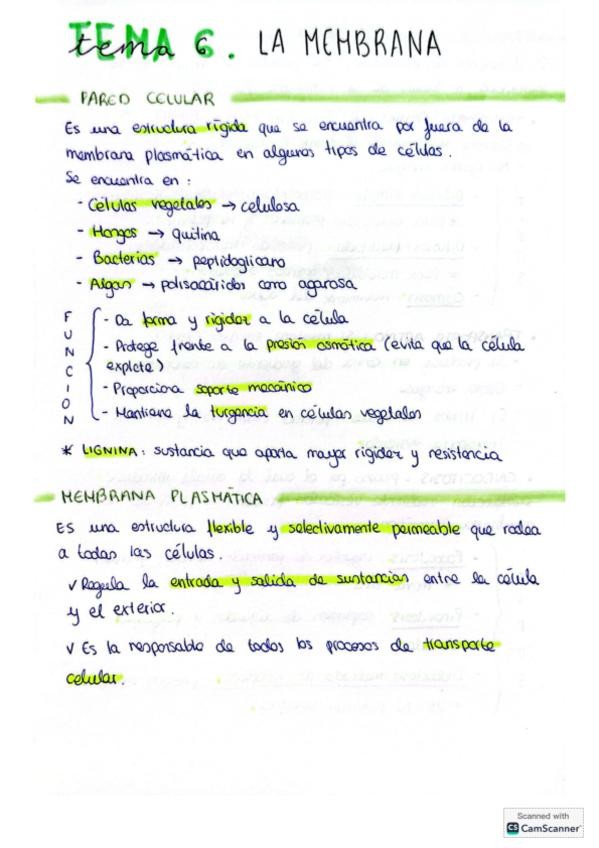 TEMA 6. LA MEMBRANA
tema
PARED CELULAR
Es una estructura rígida que se encuentra por fuera de la
membrana plasmática en algunos tipos de células.
Se encuentra en:
- Células vegetales → celulosa
- Hongos → quitina
- Bacterias → peptidoglicano
- Algas → polisacáridos como agarosa
FUNCION
- Da forma y rigidez a la célula
- Protege frente a la presión osmótica (evita que la célula
explote)
- Proporciona soporte mecánico
- Mantiene la turgencia en células vegetales
* LIGNINA: sustancia que aporta mayor rigidez y resistencia
MEMBRANA PLASMÁTICA
ES una estructura flexible y selectivamente permeable que rodea
a todas las células.
✓ Regula la entrada y salida de sustancias entre la célula
y el exterior.
✓ Es la responsable de todos los procesos de transporte
celular.
Scanned with
CS CamScanner